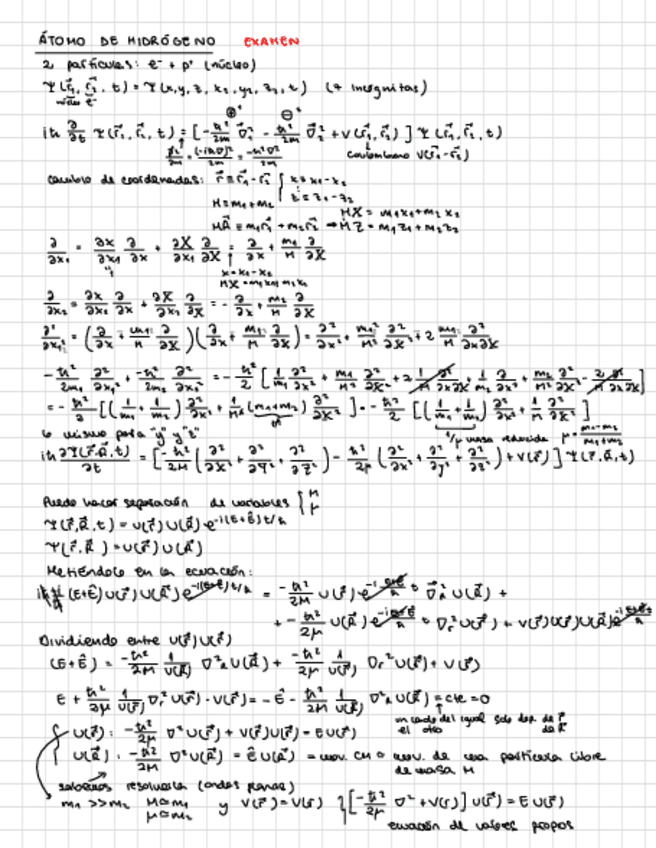 ÁTOMO DE HIDRÓGENO EXAMEN
2 partículas: e⁻ + p⁺ (núcleo)
Ψ(r⃗₁, r⃗₂, t) = Ψ(x, y, z, x₂, y₂, z₂, t) (7 incógnitas)
núcleo e⁻
iħ ∂/∂t Ψ(r⃗₁, r⃗₂, t) = [-ħ²/2m ∇⃗₁² - ħ²/2m ∇⃗₂² + V(r⃗₁, r⃗₂)] Ψ(r⃗₁, r⃗₂, t)
p²/2m = (-iħ∇)²/2m = -ħ²∇²/2m coulombiano V(r⃗₁-r⃗₂)
cambio de coordenadas: r⃗ ≡ r⃗₁-r⃗₂ { x = x₁-x₂
z = z₁-z₂
M = m₁+m₂ MX = m₁x₁+m₂x₂
MR⃗ = m₁r⃗₁ + m₂r⃗₂ ⇒ MZ = m₁z₁+m₂z₂
∂/∂x₁ = ∂x/∂x₁ ∂/∂x + ∂X/∂x₁ ∂/∂X = ∂/∂x + m₁/M ∂/∂X
x = x₁-x₂
MX = m₁x₁+m₂x₂
∂/∂x₂ = ∂x/∂x₂ ∂/∂x + ∂X/∂x₂ ∂/∂X = -∂/∂x + m₂/M ∂/∂X
∂²/∂x₁² = (∂/∂x + m₁/M ∂/∂X)(∂/∂x + m₁/M ∂/∂X) = ∂²/∂x² + m₁²/M² ∂²/∂X² + 2 m₁/M ∂²/∂x∂X
-ħ²/2m₁ ∂²/∂x₁² + -ħ²/2m₂ ∂²/∂x₂² = -ħ²/2 [1/m₁ ∂²/∂x² + m₁/M² ∂²/∂X² + 2 1/M ∂²/∂x∂X + 1/m₂ ∂²/∂x² + m₂/M² ∂²/∂X² - 2/M ∂²/∂x∂X]
= -ħ²/2 [(1/m₁ + 1/m₂) ∂²/∂x² + 1/M² (m₁+m₂) ∂²/∂X²] = -ħ²/2 [(1/m₁ + 1/m₂) ∂²/∂x² + 1/M ∂²/∂X²]
lo mismo para "y" y "z" 1/μ masa reducida
iħ ∂Ψ(r⃗,R⃗,t)/∂t = [-ħ²/2M (∂²/∂X² + ∂²/∂Y² + ∂²/∂Z²) - ħ²/2μ (∂²/∂x² + ∂²/∂y² + ∂²/∂z²) + V(r)] Ψ(r⃗,R⃗,t)
Puedo hacer separación de variables { M
μ
Ψ(r⃗,R⃗,t) = u(r⃗)U(R⃗)e^-i(E+Ê)t/ħ
Ψ(r⃗,R⃗) = u(r⃗)U(R⃗)
Metiéndolo en la ecuación:
(E+Ê)u(r⃗)U(R⃗)e^-i(E+Ê)t/ħ = -ħ²/2M u(r⃗) ∇⃗_R² U(R⃗) +
+ -ħ²/2μ U(R⃗) ∇_r² u(r⃗) + V(r⃗)u(r⃗)U(R⃗)
Dividiendo entre u(r⃗)U(R⃗)
(E+Ê) = -ħ²/2M 1/U(R⃗) ∇²_R U(R⃗) + -ħ²/2μ 1/u(r⃗) ∇_r² u(r⃗) + V(r⃗)
E + ħ²/2μ 1/u(r⃗) ∇_r² u(r⃗) - V(r⃗) = -Ê - ħ²/2M 1/U(R⃗) ∇²_R U(R⃗) = cte = 0
un lado del igual solo dep de r⃗
el otro de R⃗
{ u(r⃗): -ħ²/2μ ∇²u(r⃗) + V(r⃗)u(r⃗) = Eu(r⃗)
U(R⃗): -ħ²/2M ∇²U(R⃗) = ÊU(R⃗) = mov. CM = mov. de una partícula libre
de masa M
sabemos resolverla (ondas planas)
m₁ >> m₂ M≈m₁ y V(r⃗) = V(r) [-ħ²/2μ ∇² + V(r)] u(r⃗) = E u(r⃗)
μ≈m₂
ecuación de valores propios